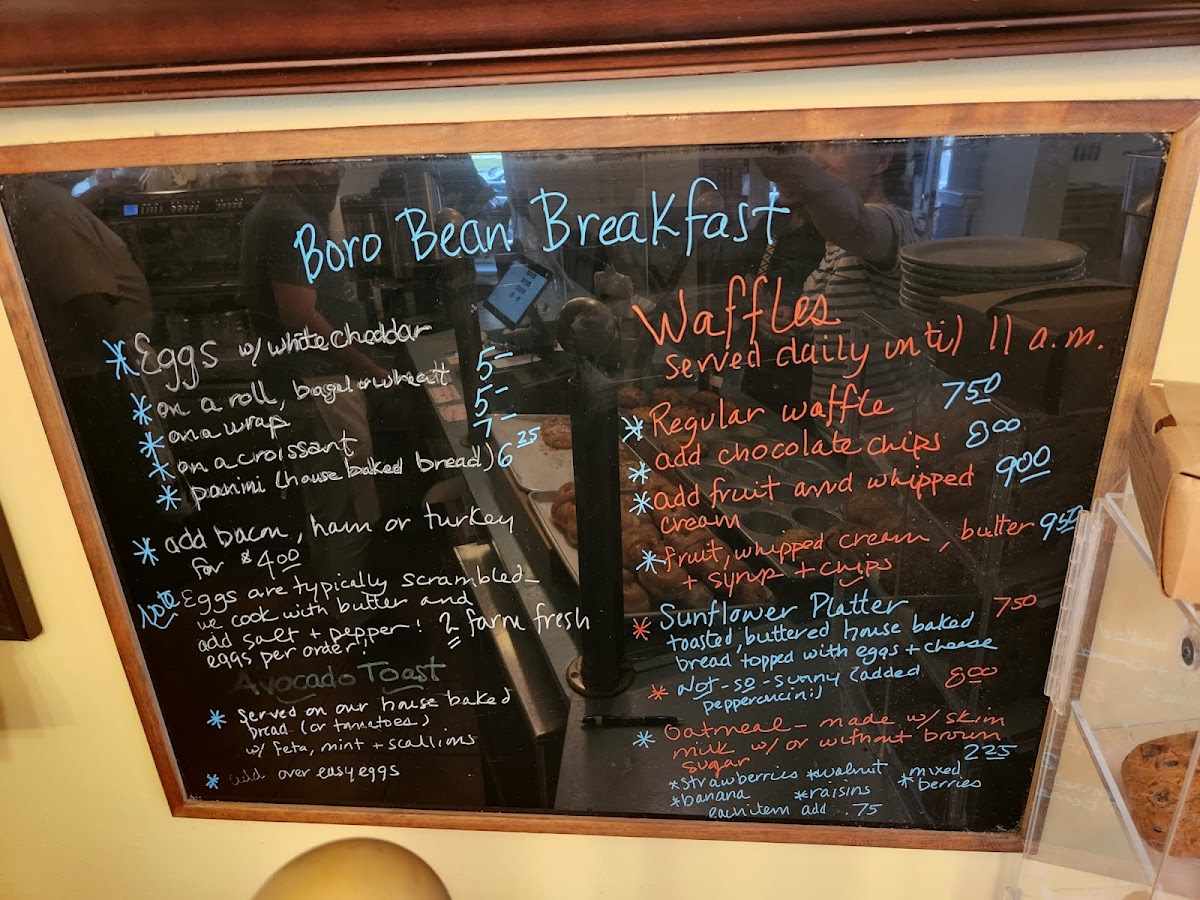 Boro Bean Breakfast
* Eggs w/ white cheddar
* on a roll, bagel or wheat 5-
* on a wrap 5-
* on a croissant 7-
* panini (house baked bread) 6 25
* add bacon, ham or turkey
for $4.00
Note Eggs are typically scrambled
we cook with butter and
add salt + pepper! 2 farm fresh
eggs per order!
Avocado Toast
* Served on our house baked
bread (or tomatoes)
w/ feta, mint + scallions
* add over easy eggs
Waffles
served daily until 11 a.m.
* Regular waffle 7 50
* add chocolate chips 8 00
* add fruit and whipped 9 00
cream
* fruit, whipped cream, butter 9 50
+ syrup + chips
* Sunflower Platter 7 50
toasted, buttered house baked
bread topped with eggs + cheese
* Not-so-sunny (added 8 00
pepperoncini)
* Oatmeal - made w/ skim
milk w/ or without brown
sugar 2 25
* strawberries * walnut * mixed
berries
* banana * raisins
each item add .75